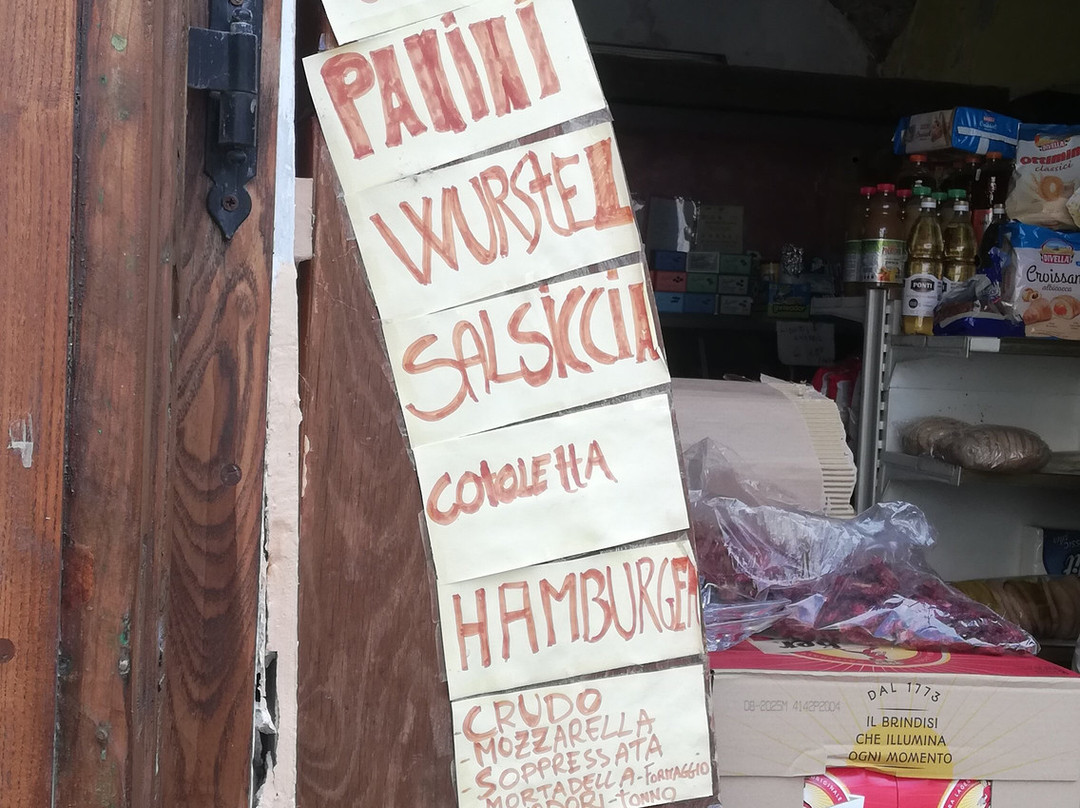 PANINI
WURSTEL
SALSICCIA
COTOLETTA
HAMBURGER
CRUDO
MOZZARELLA
SOPPRESSATA
MORTADELLA-FORMAGGIO
TONNO
DIVELLA
OTTIMINI
classici
PONTI
DIVELLA
Croissant
albicocca
08-2025M 4142P2004
DAL 1773
IL BRINDISI
CHE ILLUMINA
OGNI MOMENTO